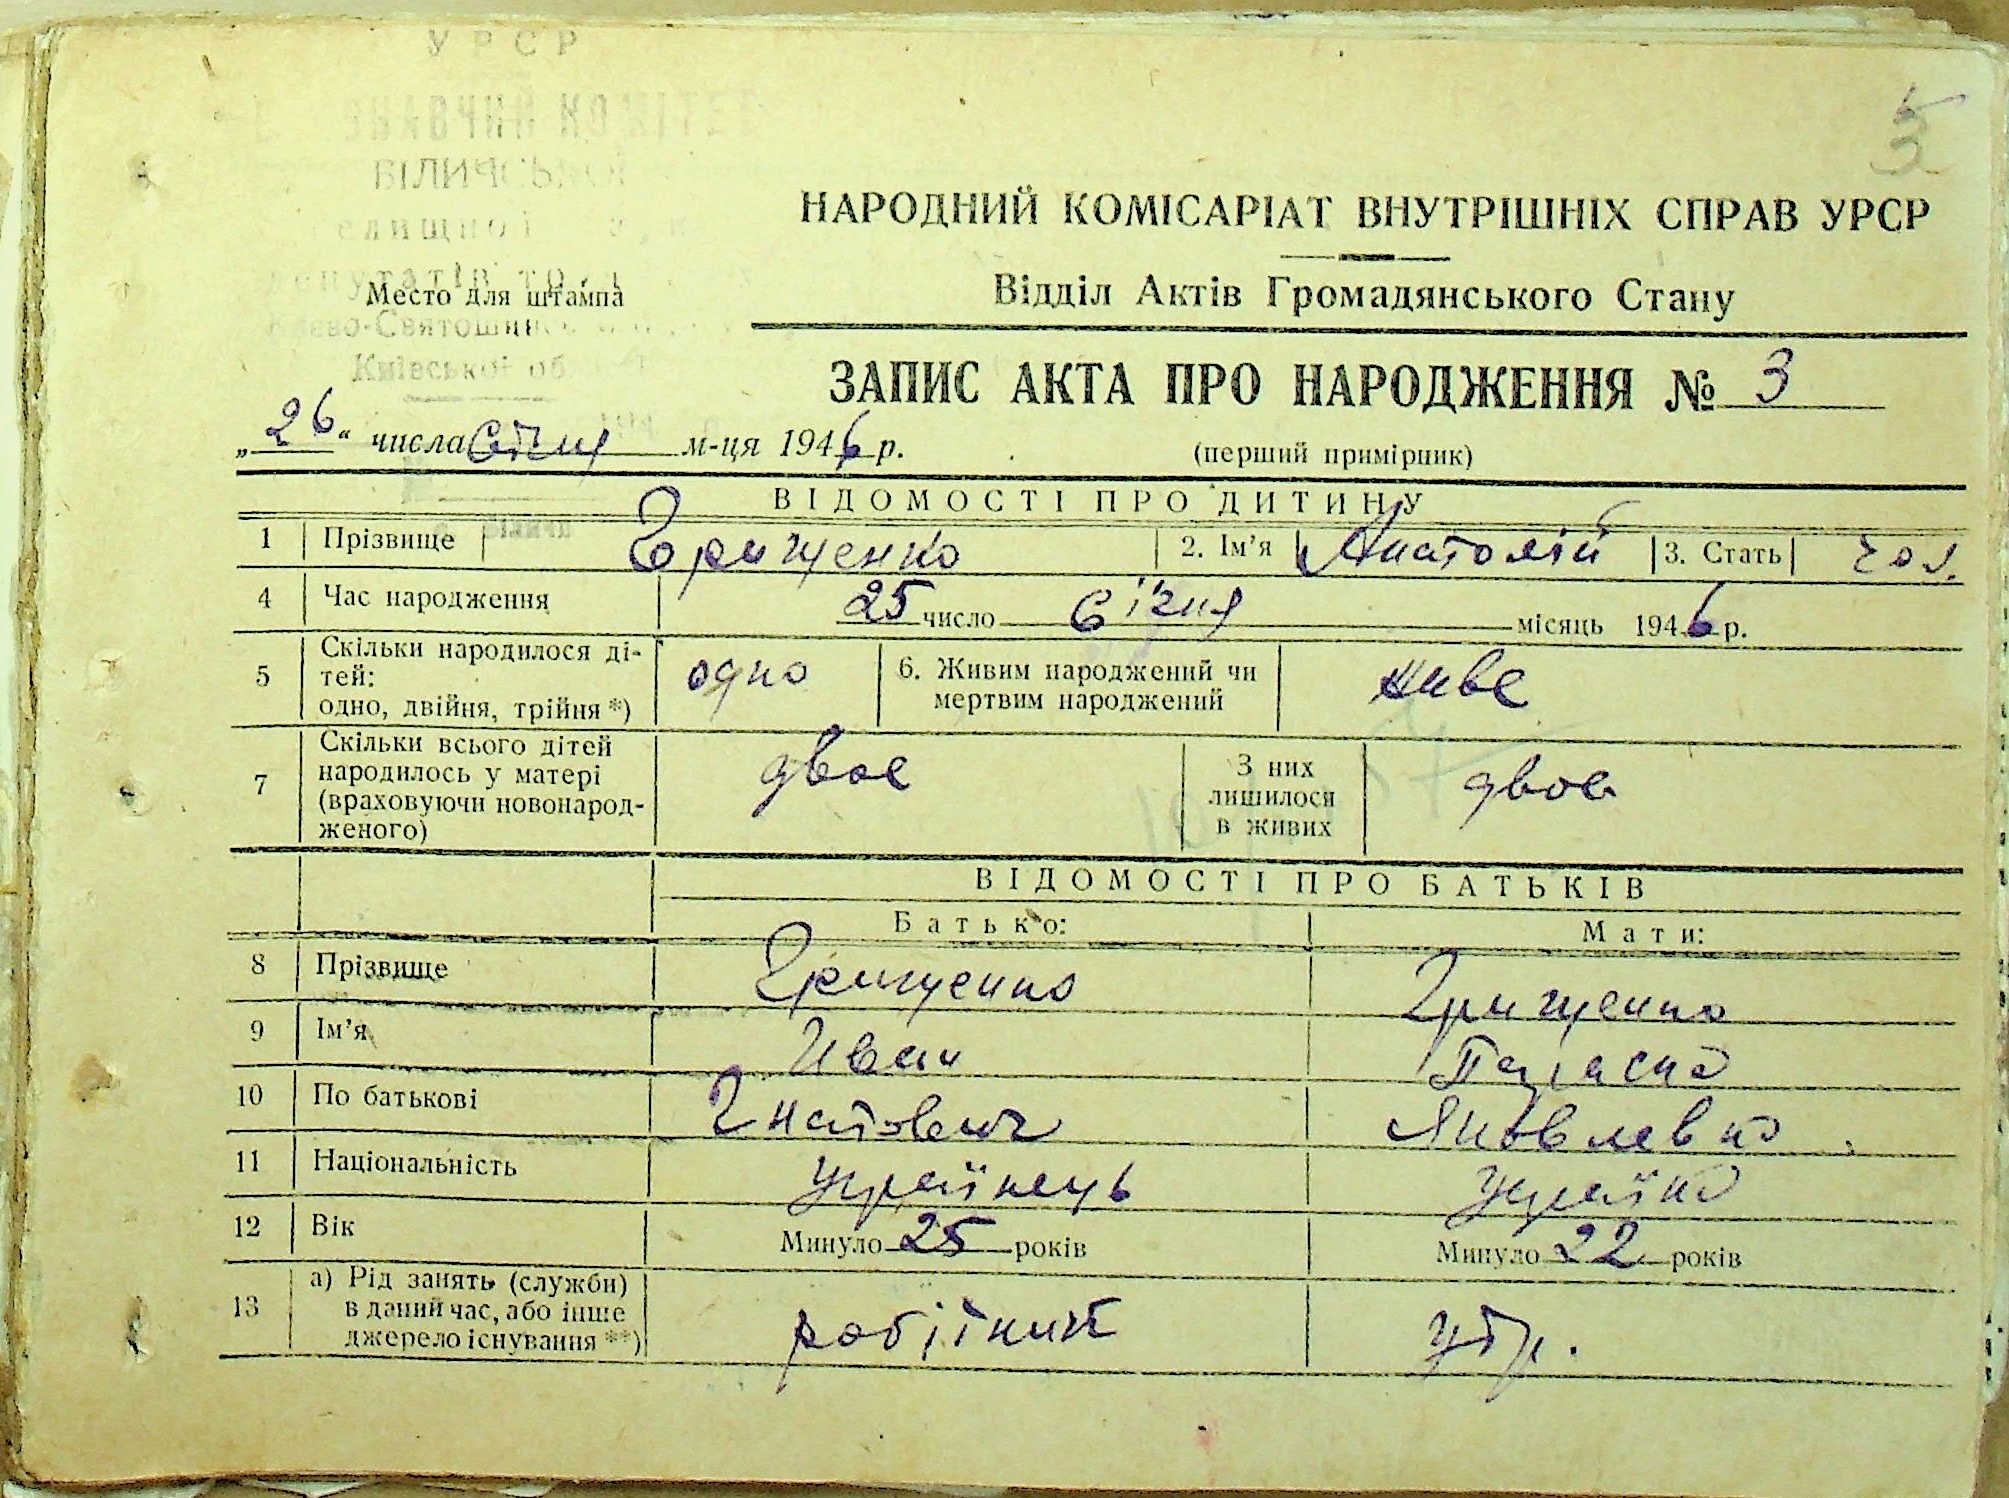 УРСР
КОМІТЕТ
БІЛИЧСЬКОЇ
5
НАРОДНИЙ КОМІСАРІАТ ВНУТРІШНІХ СПРАВ УРСР
Відділ Актів Громадянського Стану
Место для штампа
Києво-Святошинс
Київської об
ЗАПИС АКТА ПРО НАРОДЖЕННЯ № 3
(перший примірник)
„26“ числа січня м-ця 1946 р.
ВІДОМОСТІ ПРО ДИТИНУ
1 Прізвище Грищенко 2. Ім’я Анатолій 3. Стать чол.
4 Час народження 25 число січня місяць 1946 р.
5 Скільки народилося ді-
тей:
одно, двійня, трійня *) одно 6. Живим народжений чи
мертвим народжений живе
7 Скільки всього дітей
народилось у матері
(враховуючи новонарод-
женого) двоє З них
лишилося
в живих двоє
ВІДОМОСТІ ПРО БАТЬКІВ
Батько: Мати:
8 Прізвище Грищенко Грищенко
9 Ім’я Иван Параска
10 По батькові Гнатович Яковлевна
11 Національність українець українка
12 Вік Минуло 25 років Минуло 22 років
13 а) Рід занять (служби)
в даний час, або інше
джерело існування **) робітник утр.